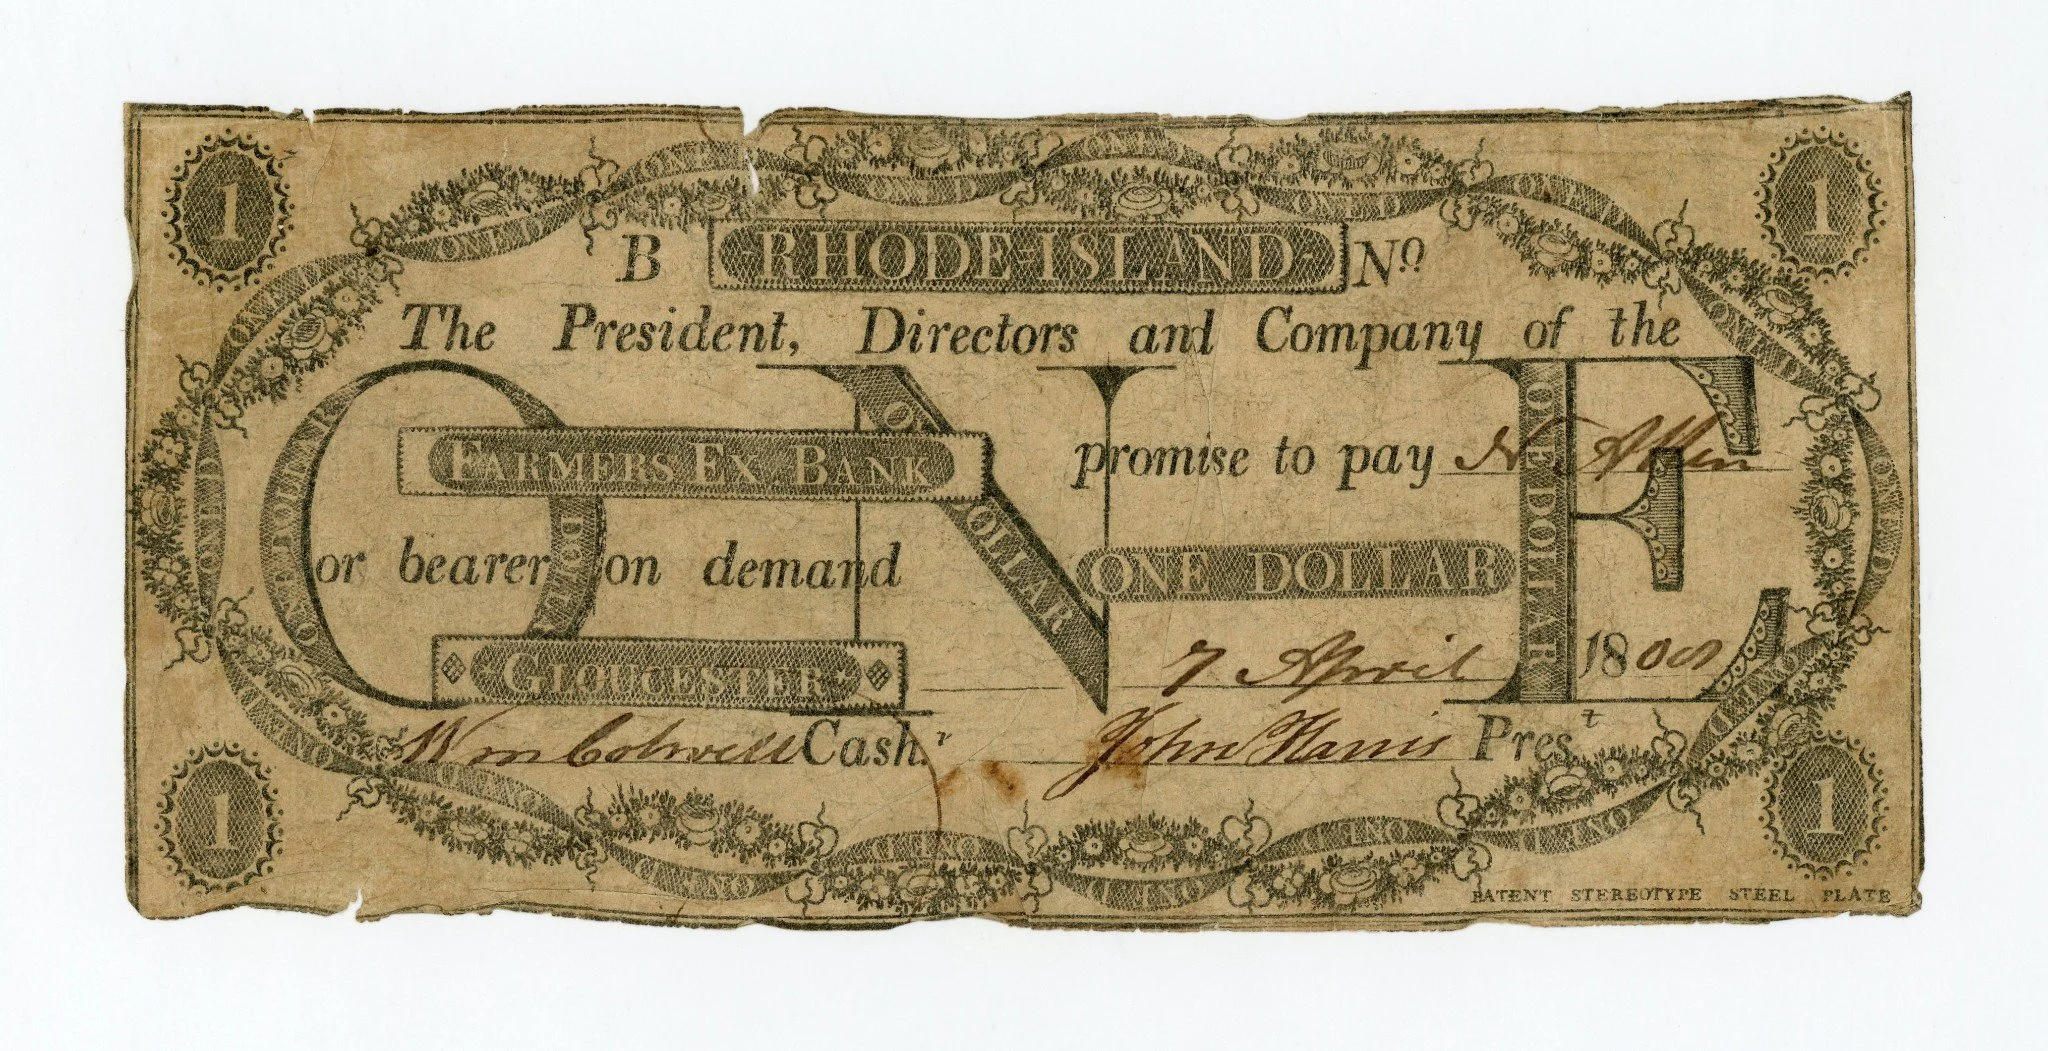 1 1
B RHODE-ISLAND No
The President, Directors and Company of the
ONE
FARMERS EX BANK promise to pay N Allen
or bearer on demand ONE DOLLAR
GLOUCESTER 7 April 1808
Wm Colwell Cash.r John Harris Pres.t
1 1
PATENT STEREOTYPE STEEL PLATE
ONE DOLLAR
ONE DOLLAR